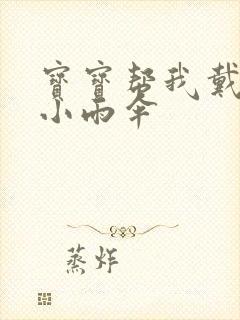 寶寶幫我戴
小雨伞
蒸炸